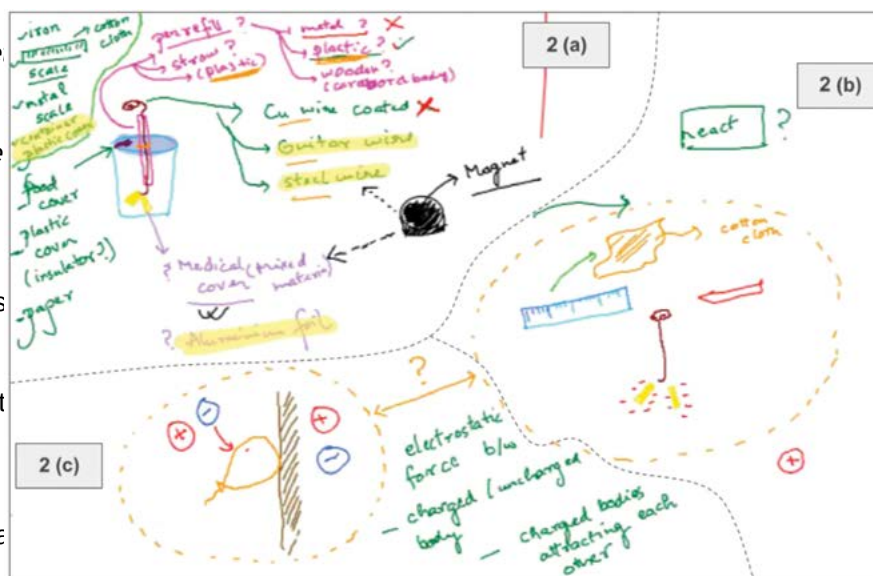 iron
cotton
cloth
scale
metal
scale
container
plastic cover
food
cover
plastic
cover
(insulator?)
paper
pen refill ?
straw ?
(plastic)
metal ?
plastic ?
wooden ?
Cu wire coated
Guitar wire
steel wire
Magnet
? Medical (mixed
cover material)
? Aluminium foil
2 (a)
2 (b)
neact ?
cotton
cloth
+
2 (c)
+
-
+
-
?
electrostatic
force b/w
- charged / uncharged
body
- charged bodies
attracting each
other